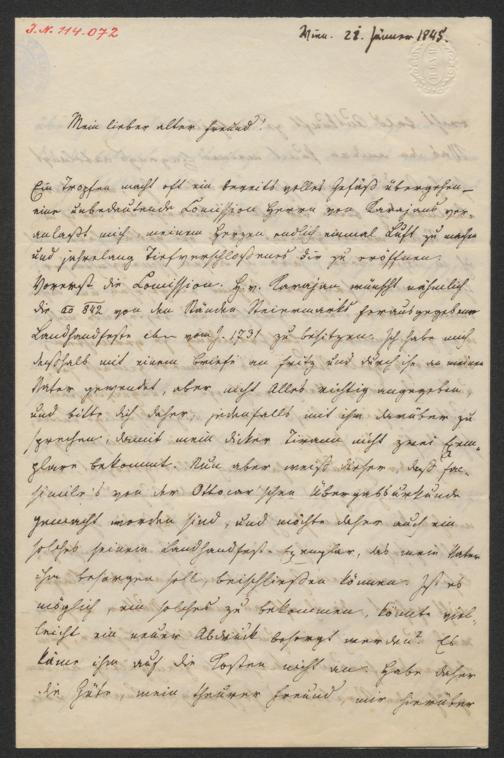 I.N. 114.072
Wien. 28. Jänner 1845.
Mein lieber alter Freund!
Ein Tropfen macht oft ein bereits volles Gefäß übergehen –
eine unbedeutende Comission Herrn von Karajans ver-
anlaßt mich, meinem Herzen endlich einmal Luft zu machen
und jahrelang Tiefverschloßenes dir zu eröffnen.
Vorerst die Comission. H. v. Karajan wünscht nähmlich
die ao 842 von den Ständen Steiermarks herausgegebene
Landhandfeste vom J. 1731 zu besitzen. Ich habe mich
deßhalb mit einem Briefe an Fritz und durch ihn an meinen
Vater gewendet, aber nicht Alles richtig angegeben,
und bitte dich daher, jedenfalls mit ihm darüber zu
sprechen, damit mein dicker Tirann nicht zwei Exem-
plare bekommt. Nun aber weiß dieser, daß Fac-
simile's von der Ottocar'schen Übergabsurkunde
gemacht worden sind, und möchte daher auch ein
solches seinem Landhandfest-Exemplar, das mein Vater
ihm besorgen soll, beischließen können. Ist es
möglich, ein solches zu bekommen, könnte viel-
leicht ein neuer Abdruck besorgt werden? Es
käme ihm auf die Kosten nicht an. Habe daher
die Güte, mein theurer Freund, mir hierüber